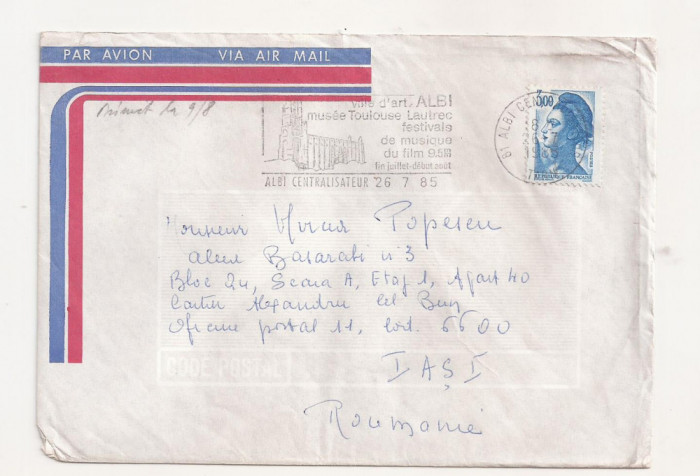 PAR AVION VIA AIR MAIL
Primit la 9/8
ville d'art, ALBI
musée Toulouse Lautrec
festivals
de musique
du film 9.5
fin juillet-début août
ALBI CENTRALISATEUR 26 7 85
81 ALBI CEN
3,00
REPUBLIQUE FRANÇAISE
Monsieur Mircea Popescu
aleea Basarabi n° 3
Bloc 2u, Scara A, Etaj 1, Apart 40
Cartier Alexandru cel Bun
Oficiul postal 11, cod. 6600
IAȘI
Roumanie
CODE POSTAL